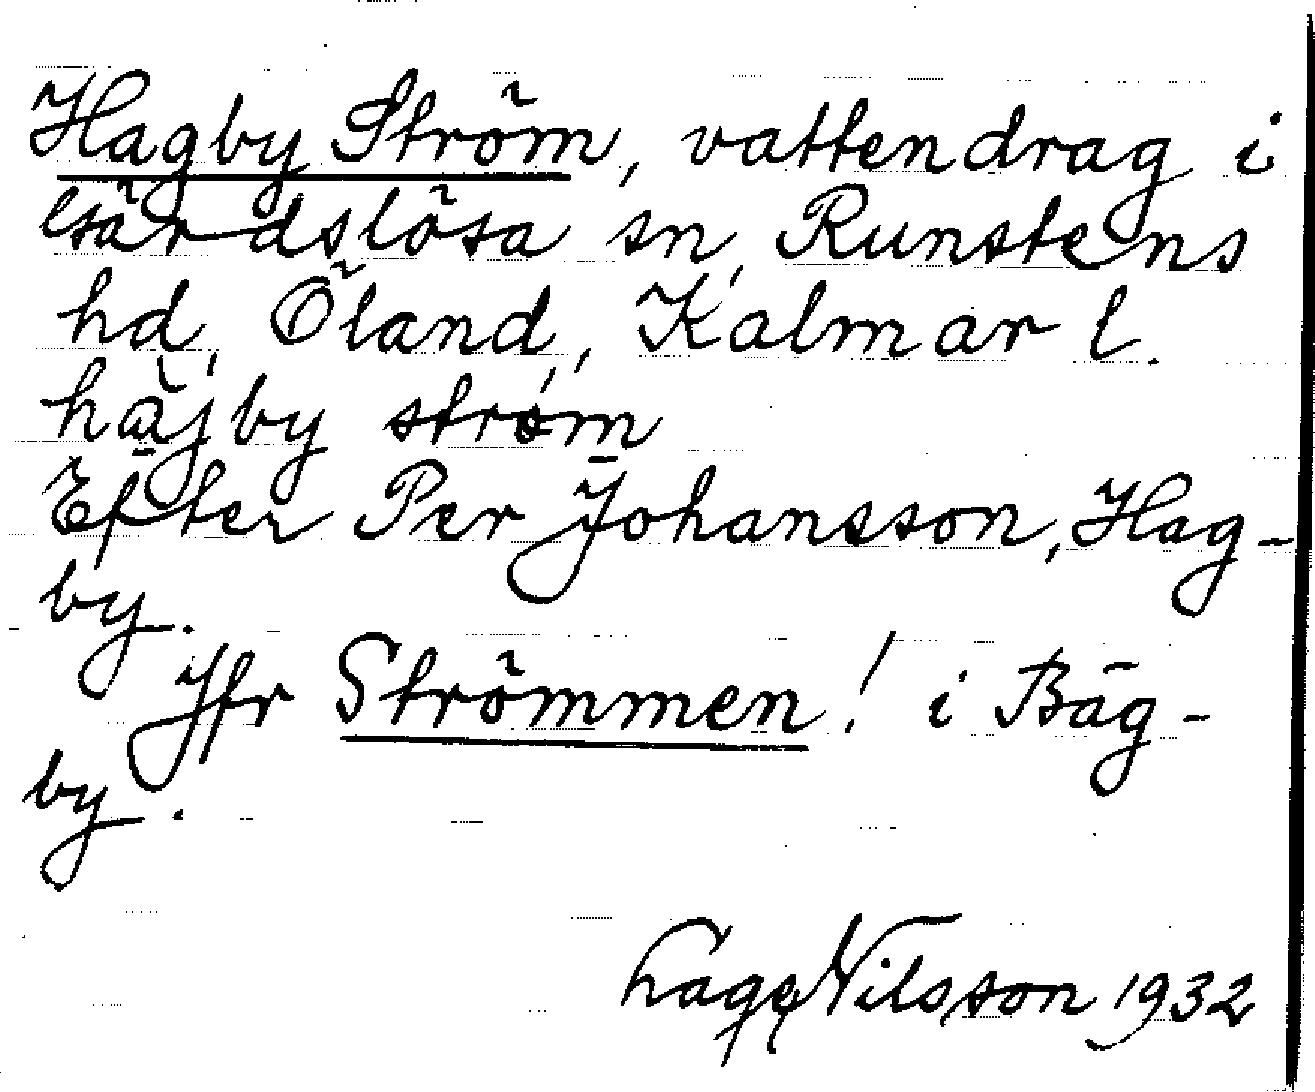 Hagby Ström, vattendrag i
Gärdslösa sn, Runstens
hd, Öland, Kalmar l.
häjby strøm
Efter Per Johansson, Hag-
by.
Jfr Strömmen! i Bäg-
by.
Lage Nilsson 1932